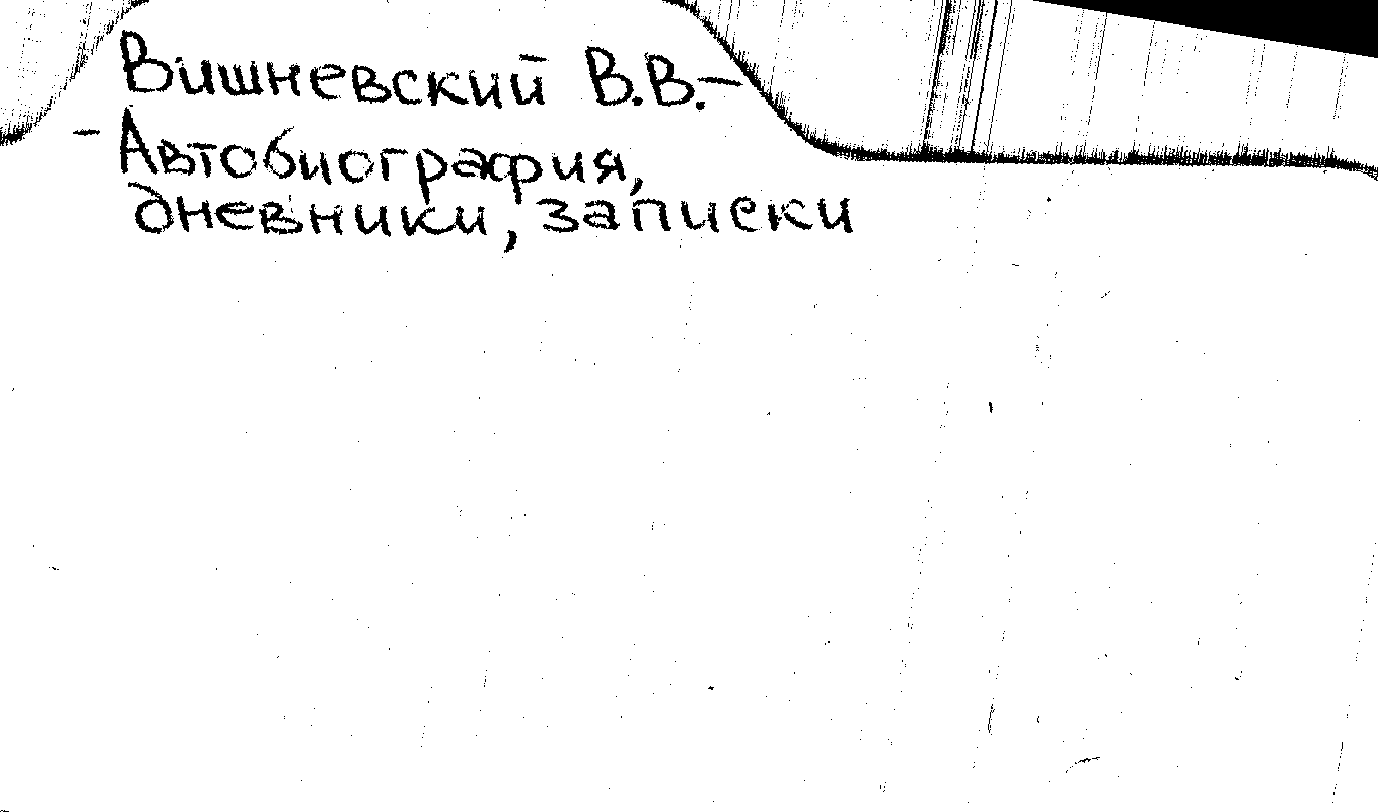 Вишневский В.В.-
- Автобиография,
дневники, записки